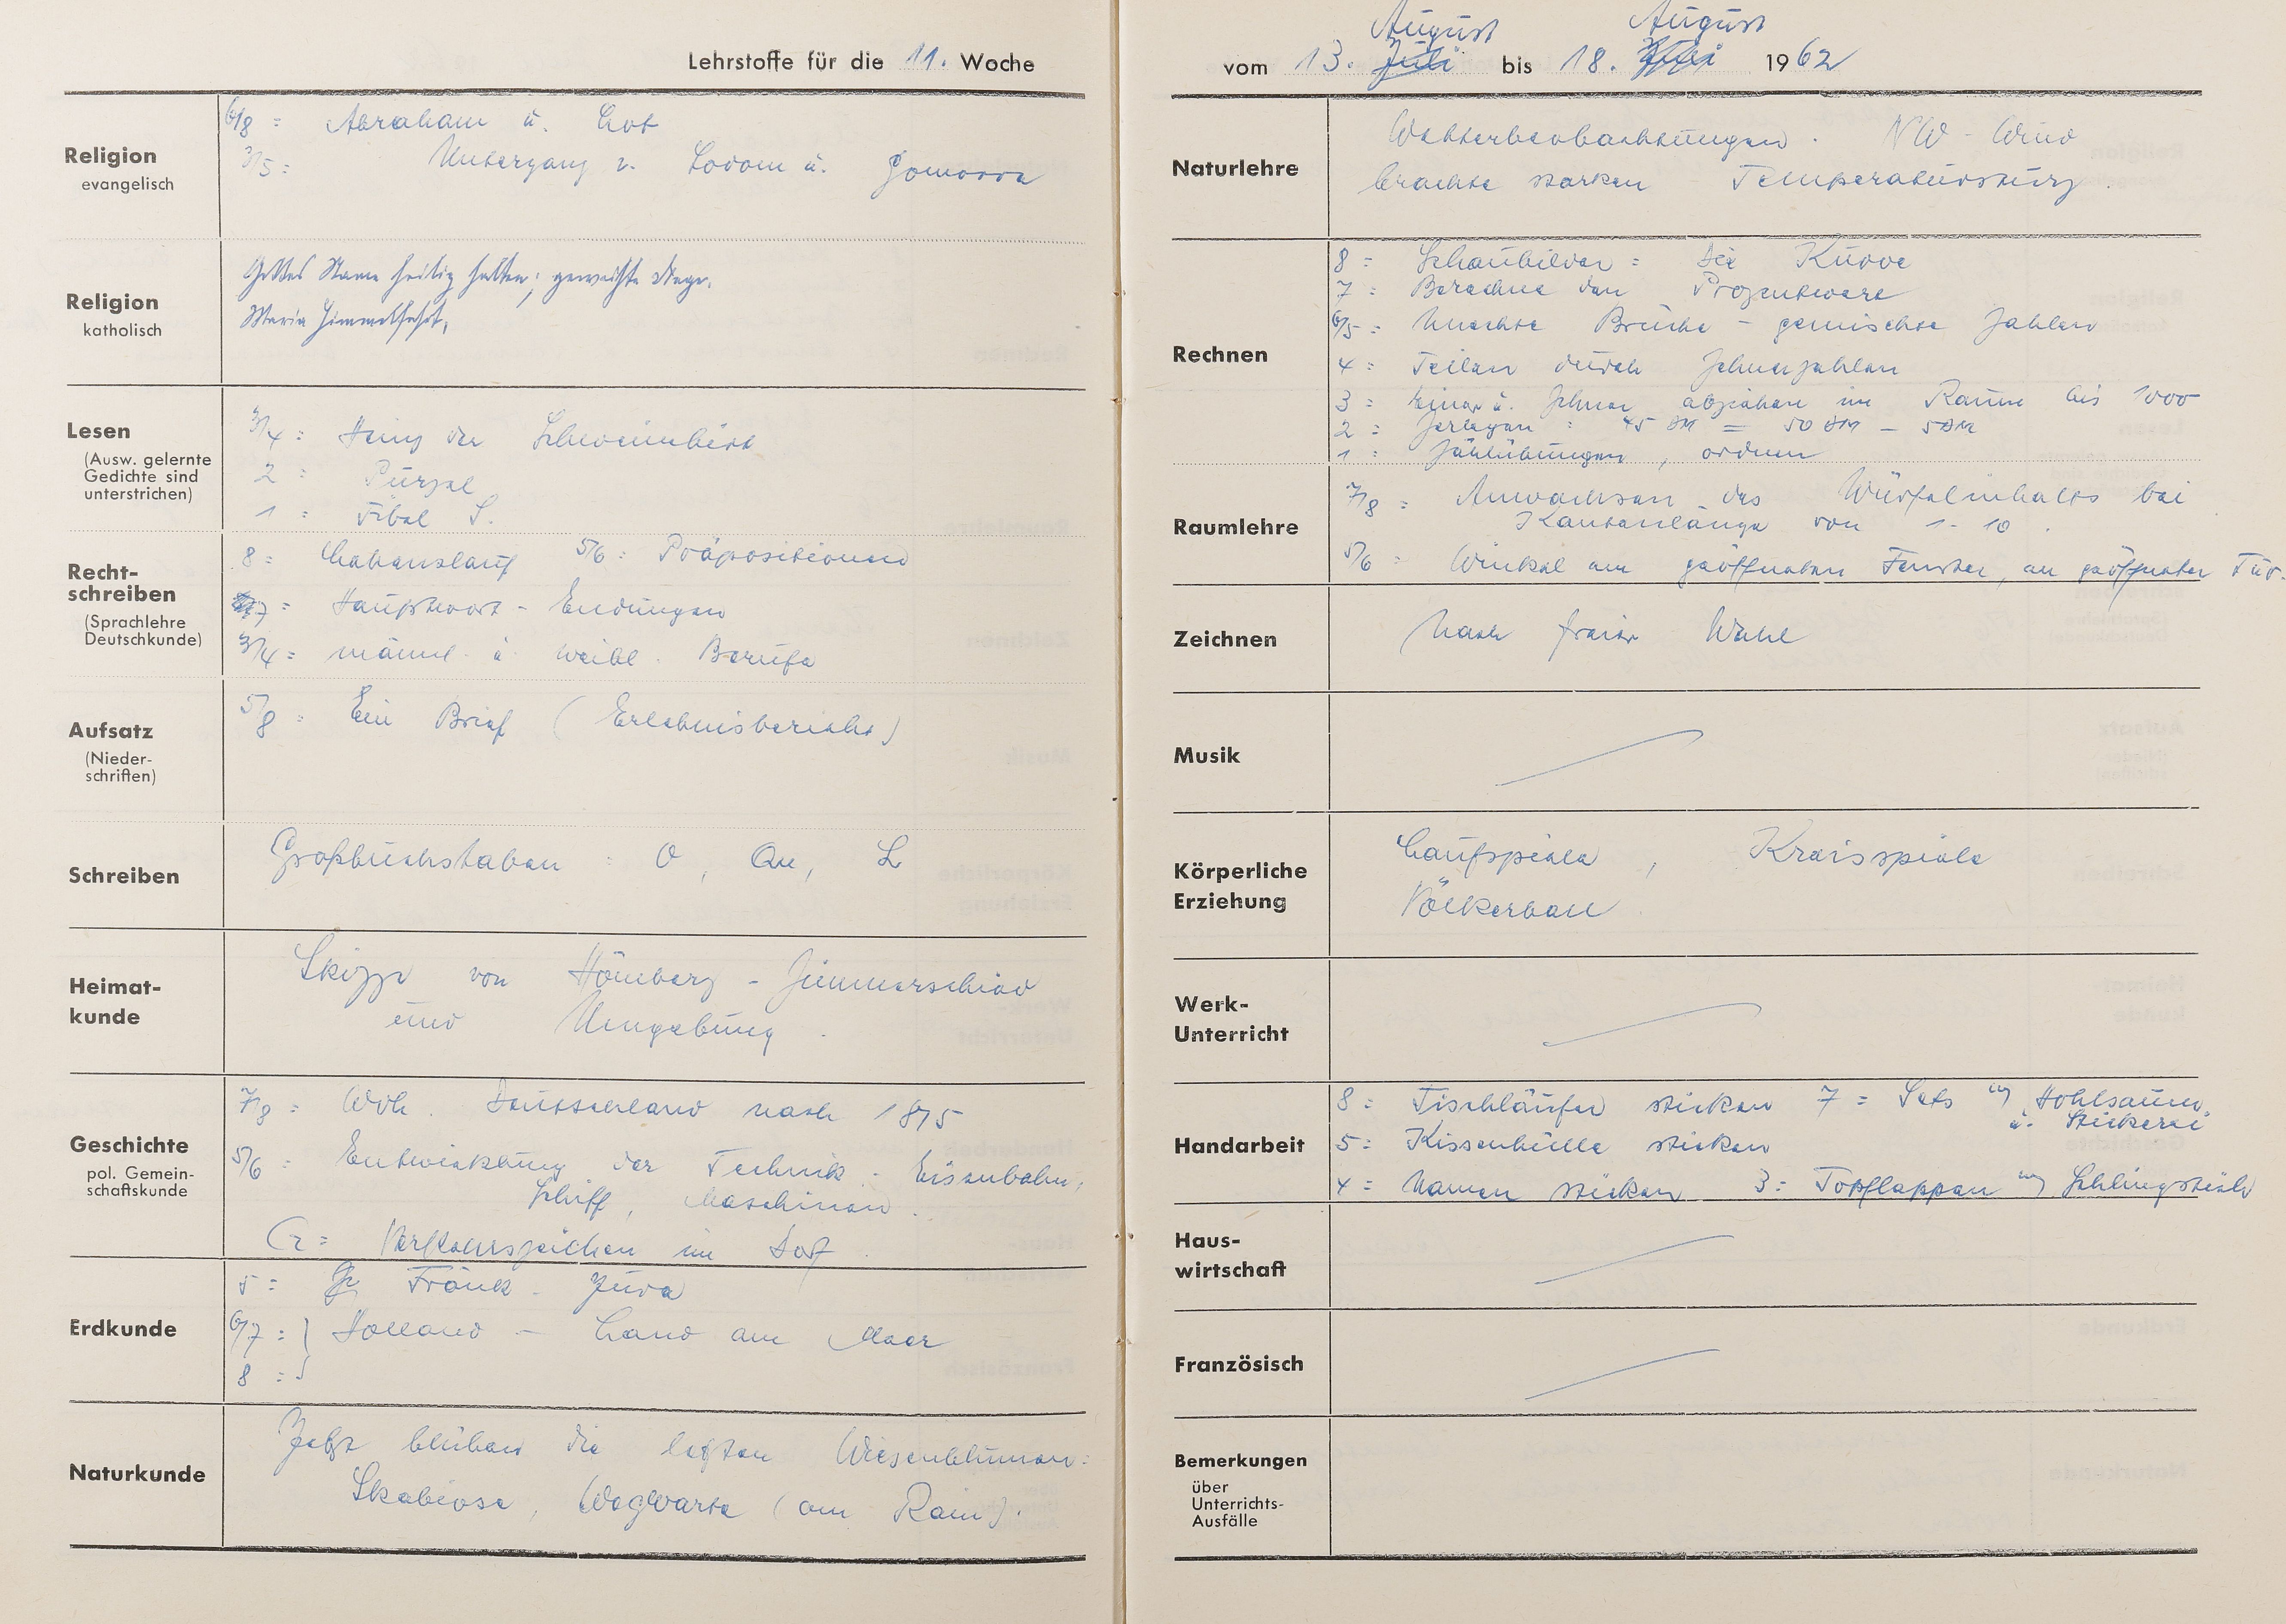 Lehrstoffe für die 11. Woche
Religion
evangelisch
6/8 = Abraham u. Lot
3/5 = Untergang v. Sodom u. Gomorra
Religion
katholisch
Gottes Name heilig halten; geweihte Dinge.
Maria Himmelfahrt,
Lesen
(Ausw. gelernte
Gedichte sind
unterstrichen)
3/4 = Heinz der Schweinhirt
2 : Purzel
1 : Fibel S.
Recht-
schreiben
(Sprachlehre
Deutschkunde)
8 = Lebenslauf 5/6 : Präpositionen
7 = Hauptwort - Endungen
3/4 = männl. u. weibl. Berufe
Aufsatz
(Nieder-
schriften)
5/8 = Ein Brief (Erlebnisbericht)
Schreiben
Großbuchstaben : O, Qu, L
Heimat-
kunde
Skizze von Hömberg - Zimmerschied
und Umgebung.
Geschichte
pol. Gemein-
schaftskunde
7/8 = Wdh. Deutschland nach 1875
5/6 = Entwicklung der Technik : Eisenbahn,
Schiff, Maschinen.
G = Verkehrszeichen im Dorf
Erdkunde
5 = Fränk. Jura
6/7 = } Holland - Land am Meer
8 =
Naturkunde
Jetzt blühen die letzten Wiesenblumen:
Skabiose, Wegwarte (am Rain).
August August
vom 13. Juli bis 18. 1962
Naturlehre
Wetterbeobachtungen. NW - Wind
brachte starken Temperatursturz.
Rechnen
8 = Schaubilder = Die Kurve
7 = Berechne den Prozentwert
6/5 = Unechte Brüche - gemischte Zahlen
4 = Teilen durch Zehnerzahlen
3 = Einer u. Zehner abziehen im Raum bis 1000
2 = Zerlegen : 45 DM = 50 DM - 5 DM
1 = Zählübungen, ordnen
Raumlehre
7/8 = Anwachsen des Würfelinhalts bei
Kantenlänge von 1 - 10.
5/6 = Winkel am geöffneten Fenster, an geöffneter Tür.
Zeichnen
Nach freier Wahl
Musik
Körperliche
Erziehung
Laufspiele, Kreisspiele
Völkerball
Werk-
Unterricht
Handarbeit
8 = Tischläufer sticken 7 = Sets m Hohlsaum,
u. Stickerei
5 = Kissenhülle sticken
4 = Namen sticken 3 = Topflappen m Schlingstich
Haus-
wirtschaft
Französisch
Bemerkungen
über
Unterrichts-
Ausfälle